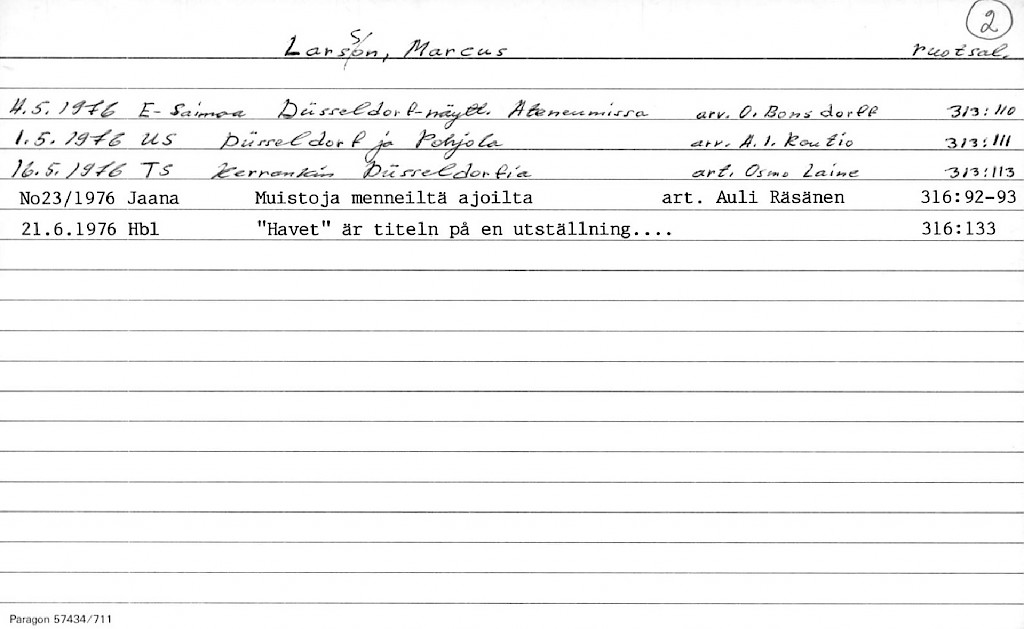 2
Larsson, Marcus ruotsal.
4.5.1976 E-Saimaa Düsseldorf-näytt. Ateneumissa arv. O. Bonsdorff 313:110
1.5.1976 US Düsseldorf ja Pohjola arv. A.I. Routio 313:111
16.5.1976 TS Kerrankin Düsseldorfia art. Osmo Laine 313:113
No23/1976 Jaana Muistoja menneiltä ajoilta art. Auli Räsänen 316:92-93
21.6.1976 Hbl "Havet" är titeln på en utställning.... 316:133
Paragon 57434/711